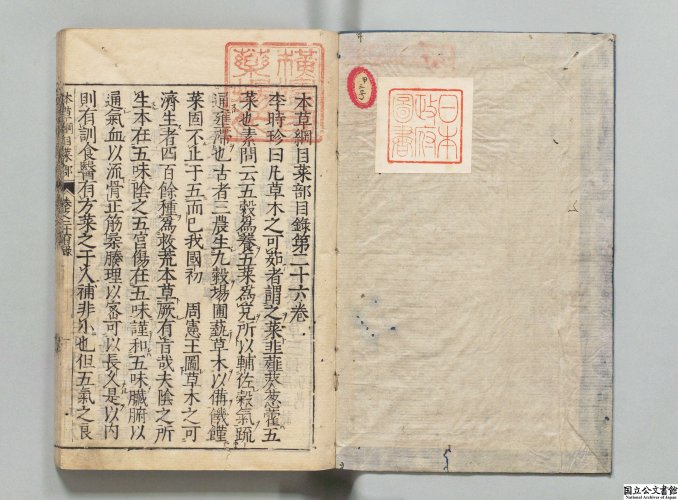 本草綱目菜部目錄第二十六卷
李時珍曰凡草木之可茹者謂之菜韭薤葵葱藿五
菜也素問云五穀為養五菜為充所以輔佐穀氣疏
通壅滯也古者三農生九穀場圃蓺草木以備饑饉
菜固不止于五而已我國初 周憲王圖草木之可
濟生者四百餘種為救荒本草厥有旨哉夫陰之所
生本在五味陰之五宮傷在五味謹和五味臟腑以
通氣血以流骨正筋柔腠理以密可以長久是以內
則有訓食醫有方菜之于人補非小也但五氣之良
本草綱目菜部
日本
政府
圖書
国立公文書館
National Archives of Japan